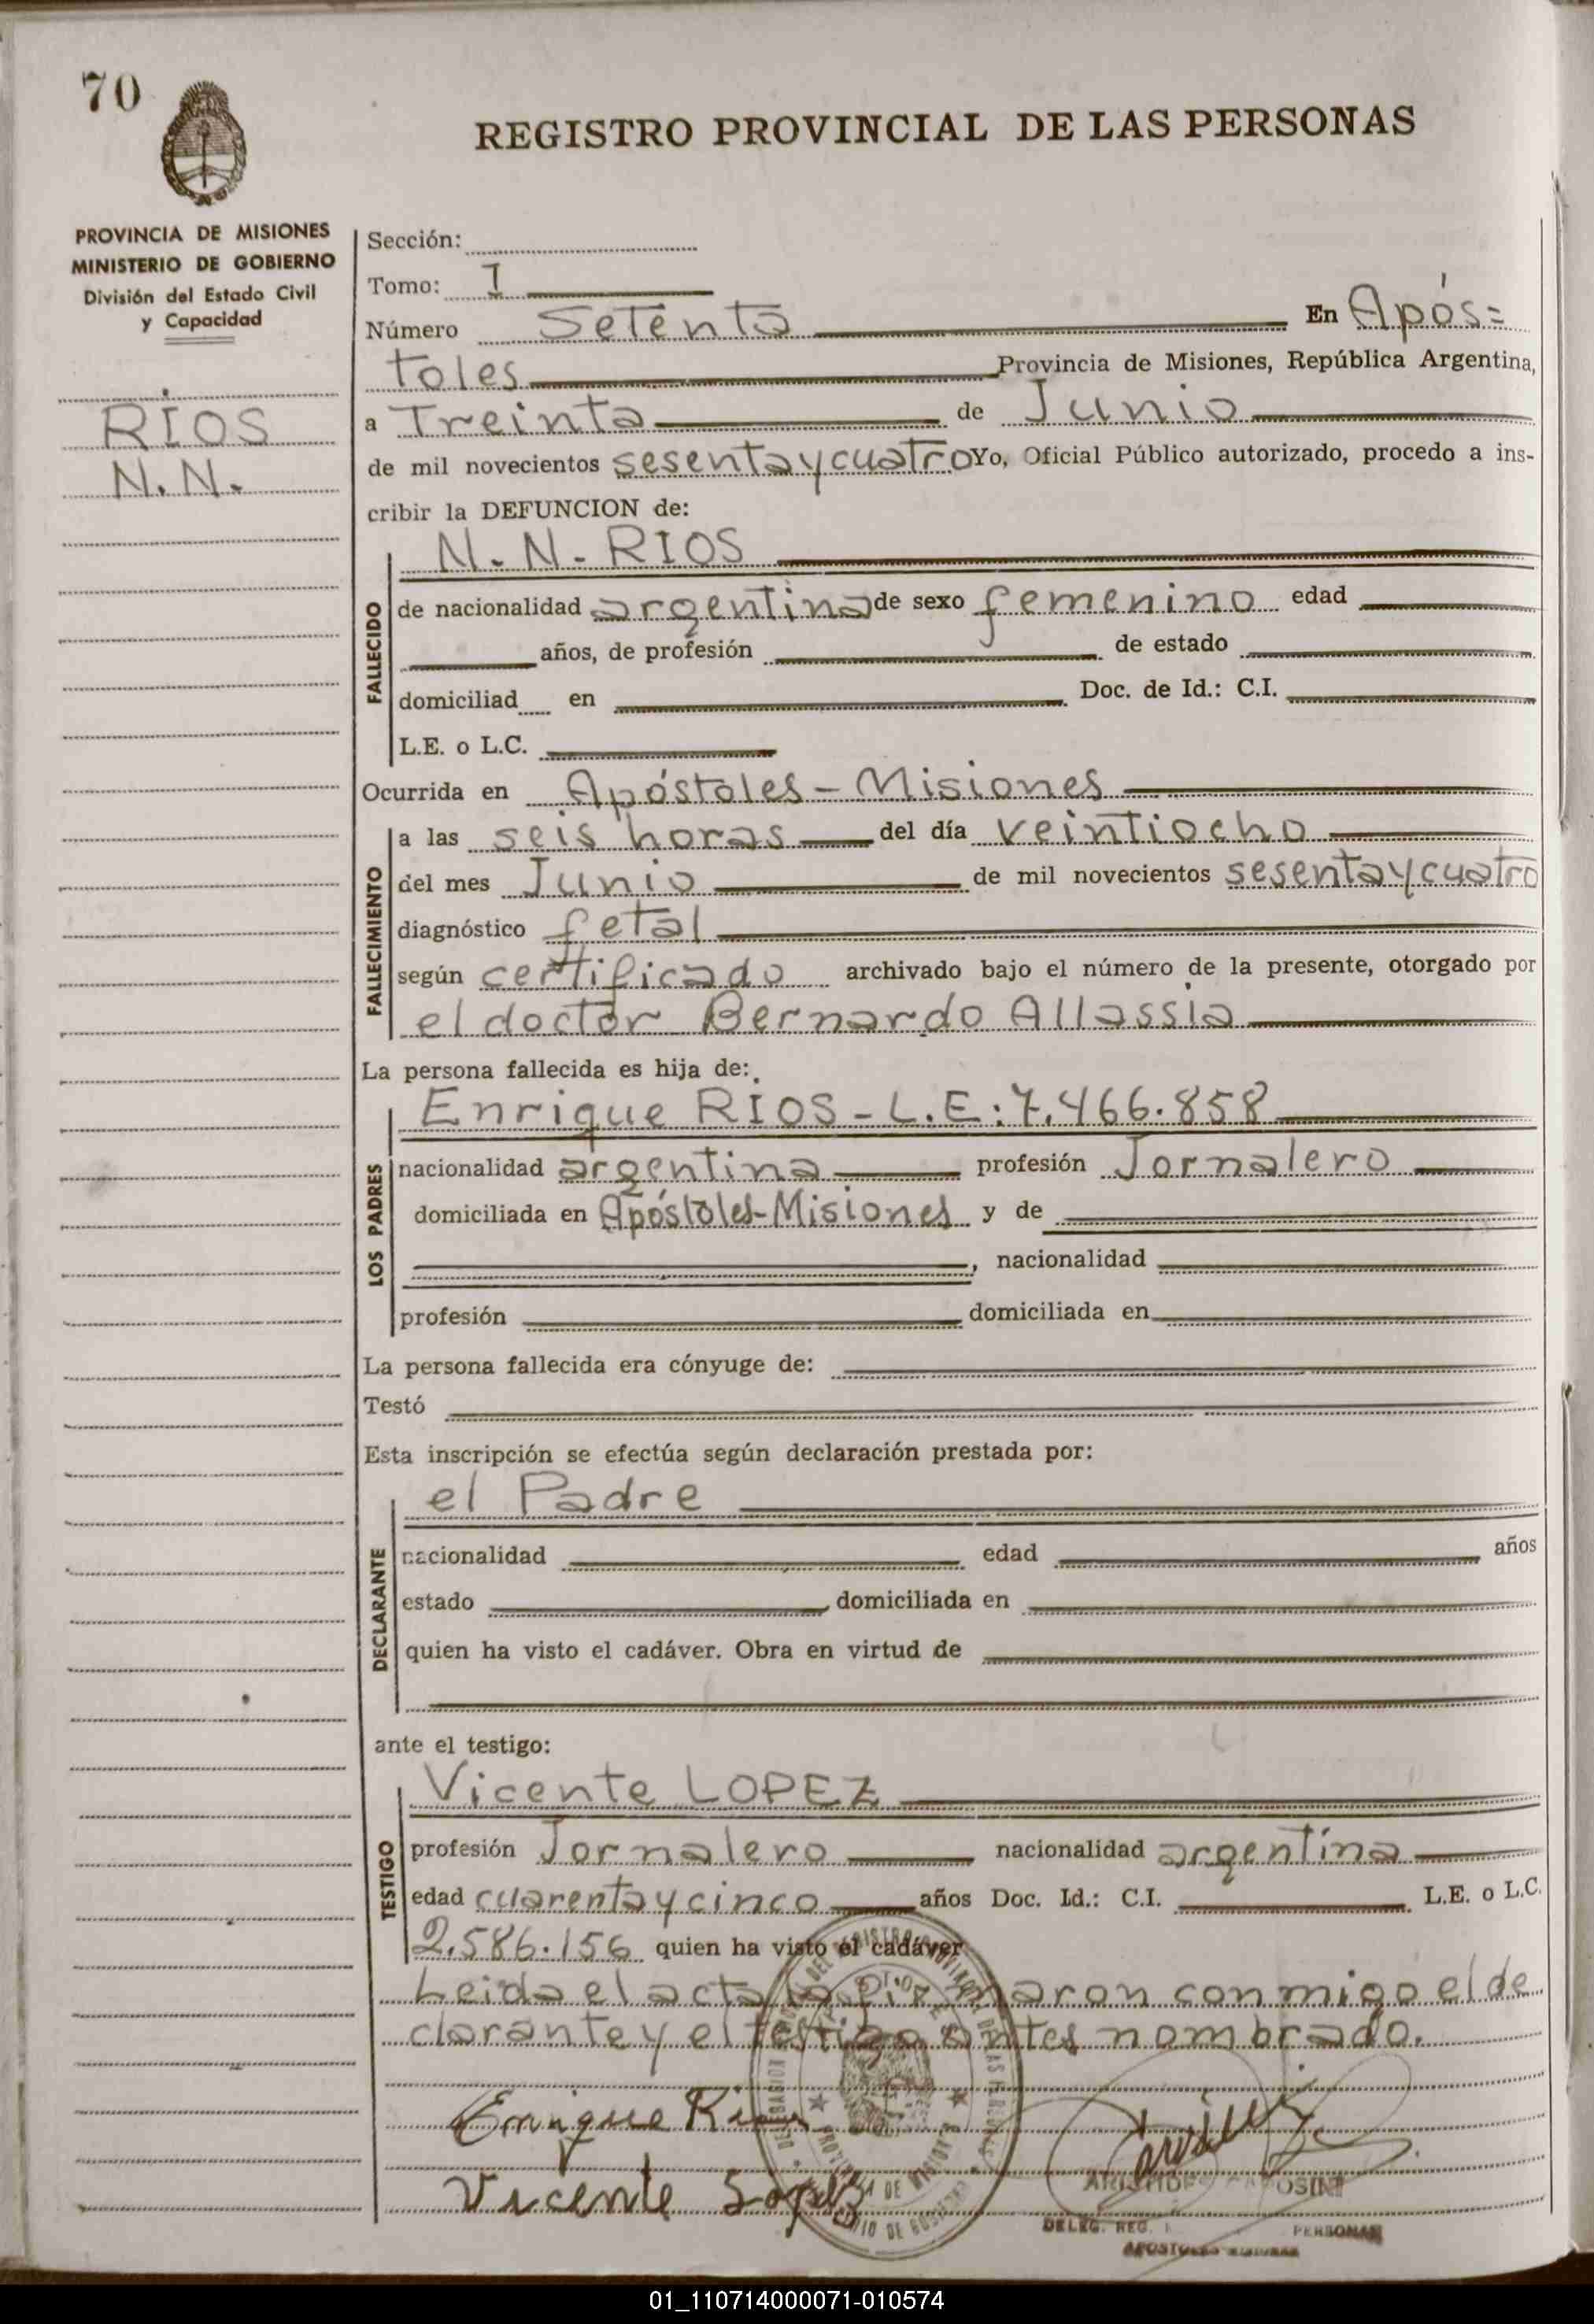 70
REGISTRO PROVINCIAL DE LAS PERSONAS
PROVINCIA DE MISIONES
MINISTERIO DE GOBIERNO
División del Estado Civil
y Capacidad
RIOS
N.N.
Sección:
Tomo: I
Número Setenta En Após=
toles Provincia de Misiones, República Argentina,
a Treinta de Junio
de mil novecientos sesenta y cuatro Yo, Oficial Público autorizado, procedo a ins-
cribir la DEFUNCION de:
N. N. RIOS
FALLECIDO
de nacionalidad argentina de sexo femenino edad
años, de profesión de estado
domiciliad en Doc. de Id.: C.I.
L.E. o L.C.
Ocurrida en Apóstoles - Misiones
FALLECIMIENTO
a las seis horas del día veintiocho
del mes Junio de mil novecientos sesenta y cuatro
diagnóstico fetal
según certificado archivado bajo el número de la presente, otorgado por
el doctor Bernardo Allassia
La persona fallecida es hija de:
LOS PADRES
Enrique RIOS - L.E: 7.466.858
nacionalidad argentina profesión Jornalero
domiciliada en Apóstoles-Misiones y de
, nacionalidad
profesión domiciliada en
La persona fallecida era cónyuge de:
Testó
Esta inscripción se efectúa según declaración prestada por:
el Padre
DECLARANTE
nacionalidad edad años
estado domiciliada en
quien ha visto el cadáver. Obra en virtud de
ante el testigo:
Vicente LOPEZ
TESTIGO
profesión Jornalero nacionalidad argentina
edad cuarenta y cinco años Doc. Id.: C.I. L.E. o L.C.
2.586.156 quien ha visto el cadáver
Leida el acta la firmaron conmigo el de
clarante y el testigo antes nombrado.
Enrique Rios
Vicente Lopez
ARISTIDES
DELEG. REG. PERSONAS
APOSTOLES MISIONES
01_110714000071-010574